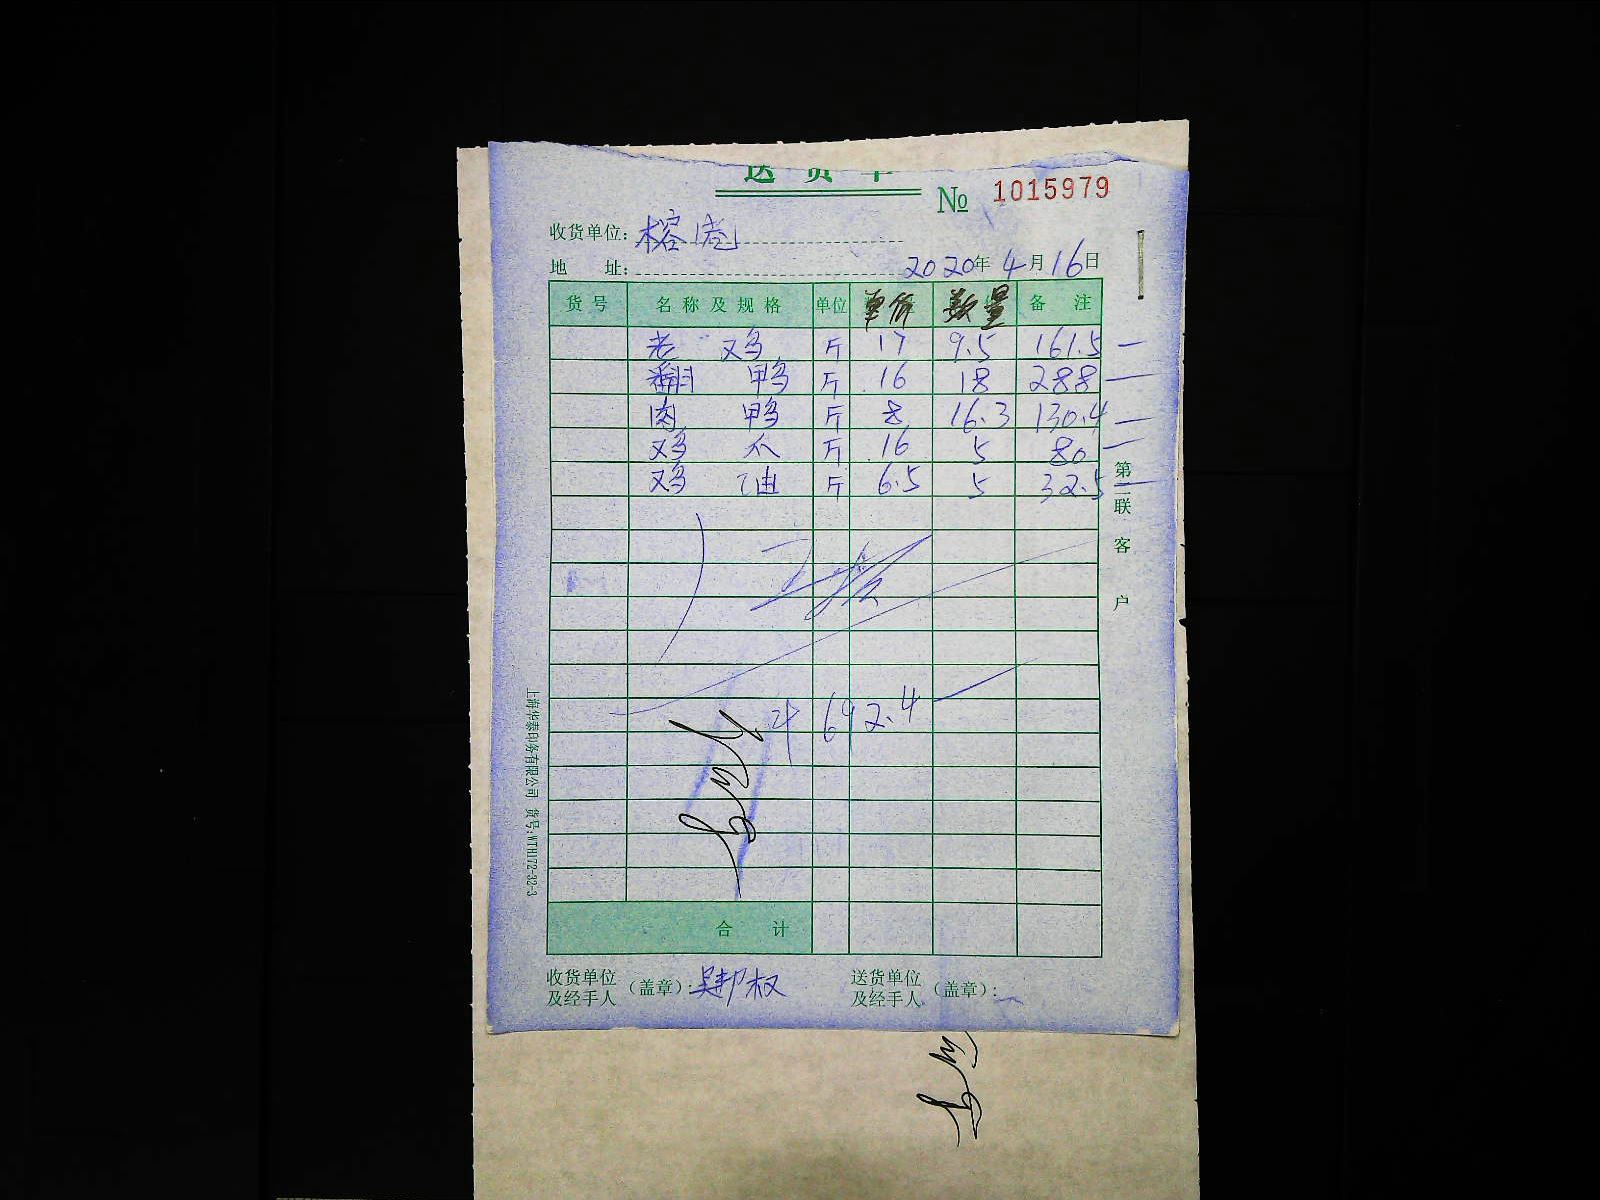 送货单
№ 1015979
收货单位: 榕港
地 址: 2020年4月16日
货号 名称及规格 单位 单价 数量 备注
老鸡 斤 17 9.5 161.5
翻鸭 斤 16 18 288
肉鸭 斤 8 16.3 130.4
鸡爪 斤 16 5 80
鸡油 斤 6.5 5 32.5
第二联 客户
计 692.4
上海华泰印务有限公司 货号:WTH172-32-3
合计
收货单位及经手人(盖章): 吴邦权
送货单位及经手人(盖章):